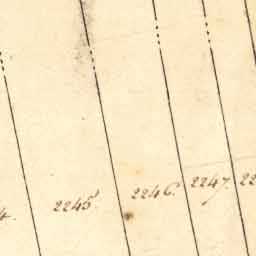 4.
2245.
2246.
2247.
22